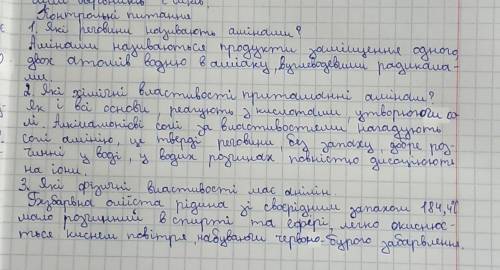 Контрольні питання
1. Які речовини називають амінами?
Амінами називаються продукти заміщення одного,
двох атомів водню в аміаку, вуглеводевими радикала-
ми.
2. Які хімічні властивості притаманні амінам?
Як і всі основи, реагують з кислотами, утворюючи со
лі. Алкіламонієві солі за властивостями нагадують
солі амінію, це тверді речовини, без запаху, добре роз-
чинні у воді, у водних розчинах повністю дисоціюють
на іони.
3. Які фізичні властивості має анілін.
Безбарвна оліїста рідина зі своєрідним запахом 184,4
мало розчинний в спирті та ефірі, легко окиснює-
ться киснем повітря, набуваючи червоно-бурого забарвлення.